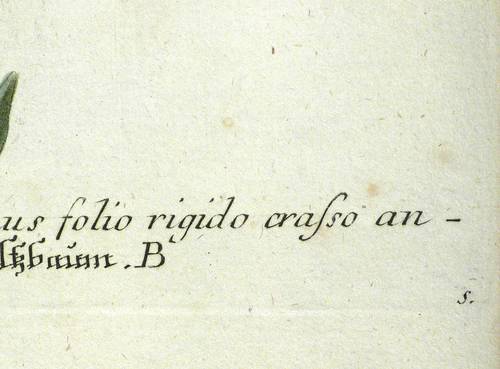 us folio rigido craſso an-
ltzbaum. B
s.